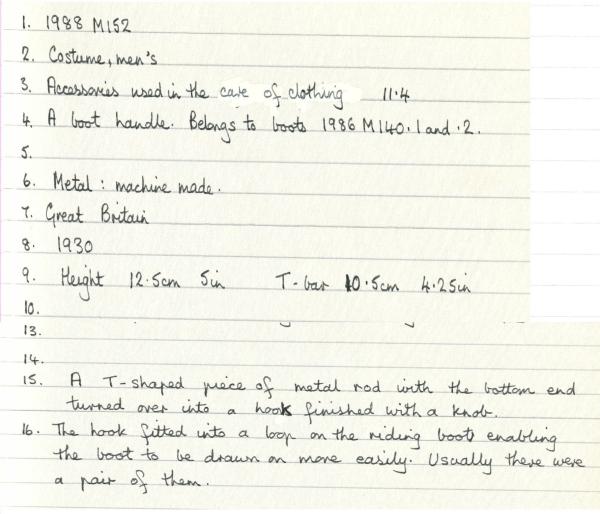 1. 1988 M152
2. Costume, men's
3. Accessories used in the care of clothing 11.4
4. A boot handle. Belongs to boots 1986 M140.1 and .2.
5.
6. Metal: machine made.
7. Great Britain
8. 1930
9. Height 12.5cm 5in T-bar 10.5cm 4.25in
10.
13.
14.
15. A T-shaped piece of metal rod with the bottom end
turned over into a hook finished with a knob.
16. The hook fitted into a loop on the riding boot enabling
the boot to be drawn on more easily. Usually there were
a pair of them.